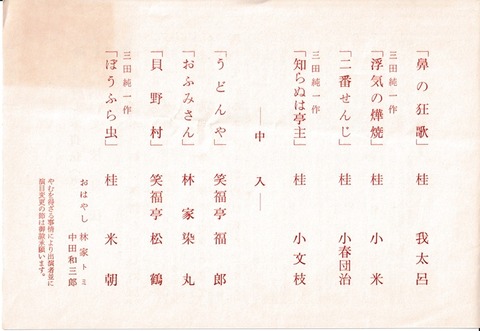 「鼻の狂歌」 桂 我太呂
三田純一作
「浮気の燁焼」 桂 小米
「二番せんじ」 桂 小春団治
三田純一作
「知らぬは亭主」 桂 小文枝
―中入―
「うどんや」 笑福亭福郎
「おふみさん」 林家染丸
「貝野村」 笑福亭松鶴
三田純一作
「ぼうふら虫」 桂 米朝
おはやし 林家トミ
中田和三郎
やむを得ざる事情により出演者並に
演目変更の節は御諒承願います。